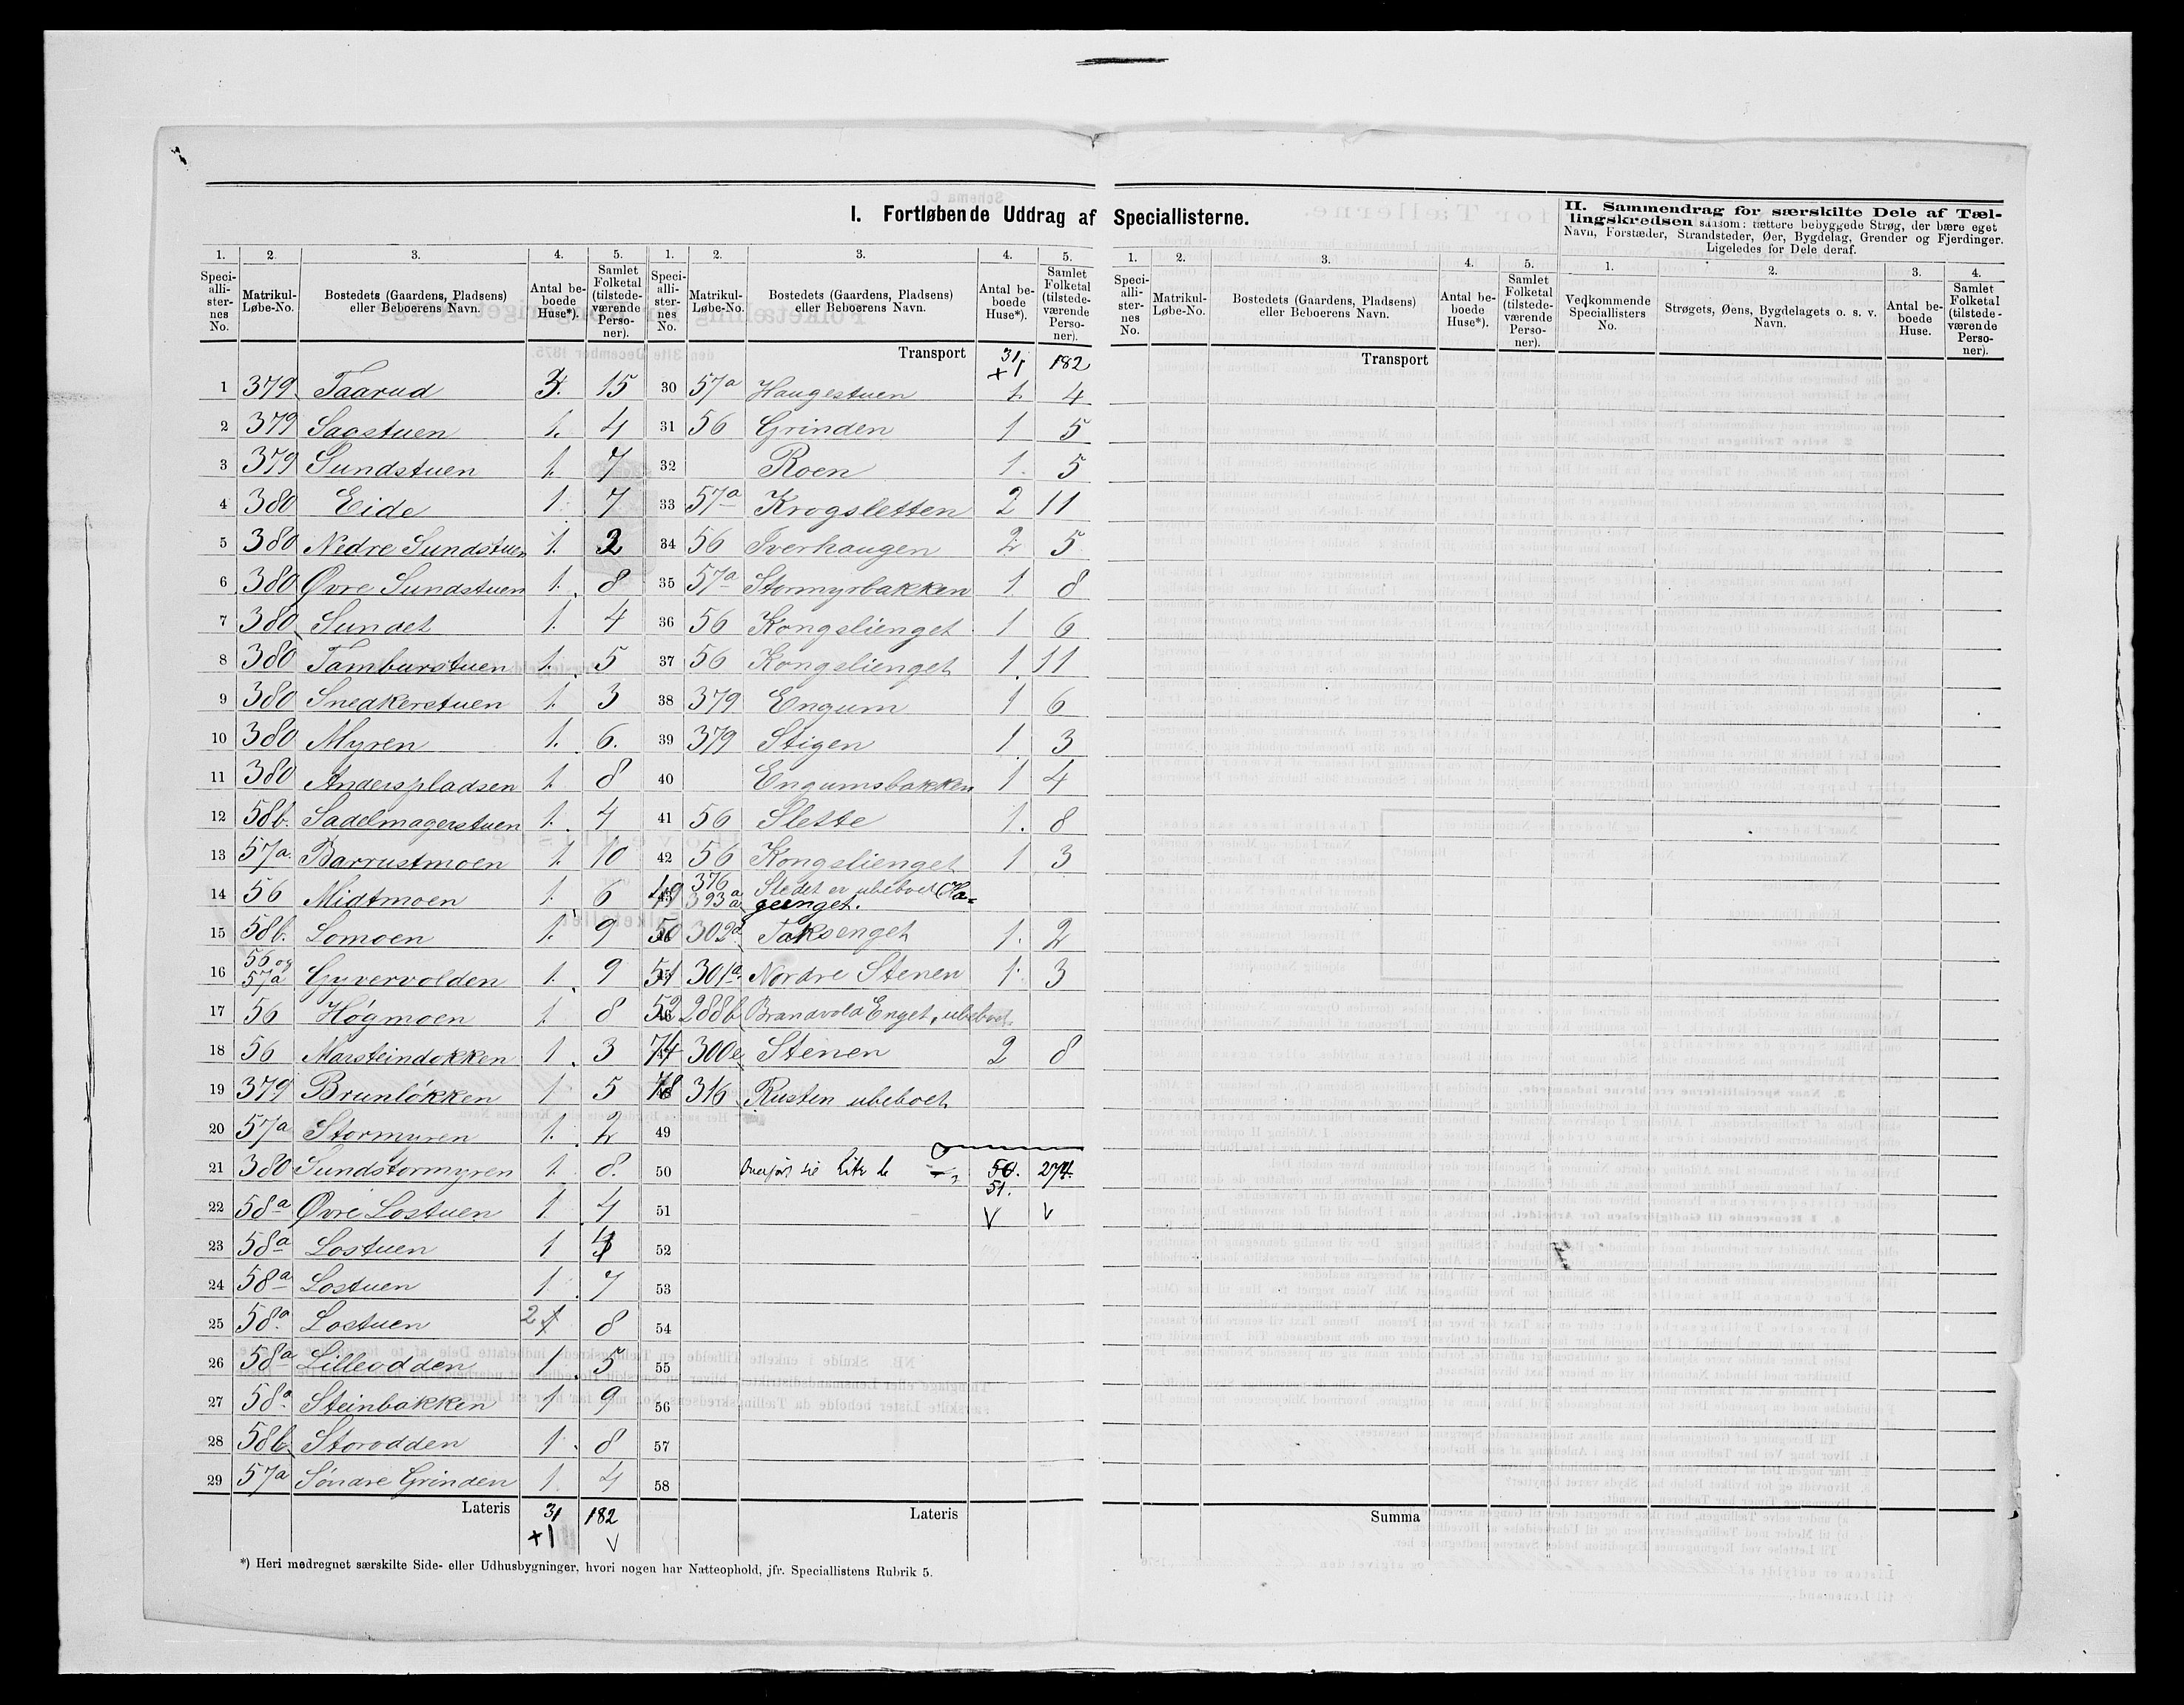 I. Fortløbende Uddrag af Speciallisterne.
II. Sammendrag for særskilte Dele af Tæl-
lingskredsen saasom: tættere bebyggede Strøg, der bære eget
Navn, Forstæder, Strandsteder, Øer, Bygdelag, Grender og Fjerdinger.
Ligeledes for Dele deraf.
1. 2. 3. 4. 5. 1. 2. 3. 4. 5. 1. 2. 3. 4. 5. 1. 2. 3. 4.
Speci-alli-ster-nes No. Matrikul-Løbe-No. Bostedets (Gaardens, Pladsens) eller Beboerens Navn. Antal be-boede Huse*). Samlet Folketal (tilstede-værende Perso-ner).
Speci-alli-ster-nes No. Matrikul-Løbe-No. Bostedets (Gaardens, Pladsens) eller Beboerens Navn. Antal be-boede Huse*). Samlet Folketal (tilstede-værende Perso-ner).
Speci-alli-ster-nes No. Matrikul-Løbe-No. Bostedets (Gaardens, Pladsens) eller Beboerens Navn. Antal be-boede Huse*). Samlet Folketal (tilstede-værende Perso-ner).
Vedkommende Speciallisters No. Strøgets, Øens, Bygdelagets o. s. v. Navn. Antal be-boede Huse. Samlet Folketal (tilstede-værende Perso-ner).
1 379 Taarud 3. 15
2 379 Sagstuen 1. 4
3 379 Sundstuen 1. 7
4 380 Eide 1 7
5 380 Nedre Sundstuen 1.
6 380 Øvre Sundstuen 1. 8
7 380 Sundet 1. 4
8 380 Tamburstuen 1. 5
9 380 Snedkerstuen 1. 3
10 380 Myren 1. 6.
11 380 Anderspladsen 1. 8
12 58b. Sadelmagerstuen 1. 4
13 57a. Barrustmoen 1. 10
14 56 Midtmoen 1. 6
15 58b. Lomoen 1. 9
16 56 og 57a Gyvervolden 1. 9
17 56 Høgmoen 1. 8
18 56 Marsteindokken 1. 3
19 379 Brunløkken 1 5
20 57a Stormyren 1. 2
21 380 Sundstormyren 1. 8.
22 58a Øvre Lostuen 1. 4
23 58a Lostuen 1
24 58a Lostuen 1. 7
25 58a. Lostuen 2 1 8
26 58a Lilleodden 1. 5
27 58a. Steinbakken 1 9
28 58b Storodden 1. 8
29 57a Søndre Grinden 1. 4
Lateris 31 182
+1 V
Transport 31 182
+1
30 57a Haugestuen 1. 4
31 56 Grinden 1 5
32 Roen 1. 5
33 57a Krogsletten 2 11
34 56 Iverhaugen 2 5
35 57a Stormyrbakken 1 8
36 56 Kongslienget 1 6
37 56 Kongslienget 1. 11
38 379 Engum 1 6
39 379 Stigen 1 3
40 Engumsbakken 1 4
41 56 Slette 1. 8
42 56 Kongslienget 1 3
49 376 393a Stedet er ubeboet (Ha-
geenget.
50 302d Taksenget 1. 2
51 301a Nordre Stenen 1. 3
52 288b Brandvold Enget, ubeboet
74 300e Stenen 2 8
78 316 Rusten ubeboet
49
50 50. 274.
51.
51 V V
52
53
54
55
56
57
58
Lateris
Transport
Summa
*) Heri medregnet særskilte Side- eller Udhusbygninger, hvori nogen har Natteophold, jfr. Speciallistens Rubrik 5.